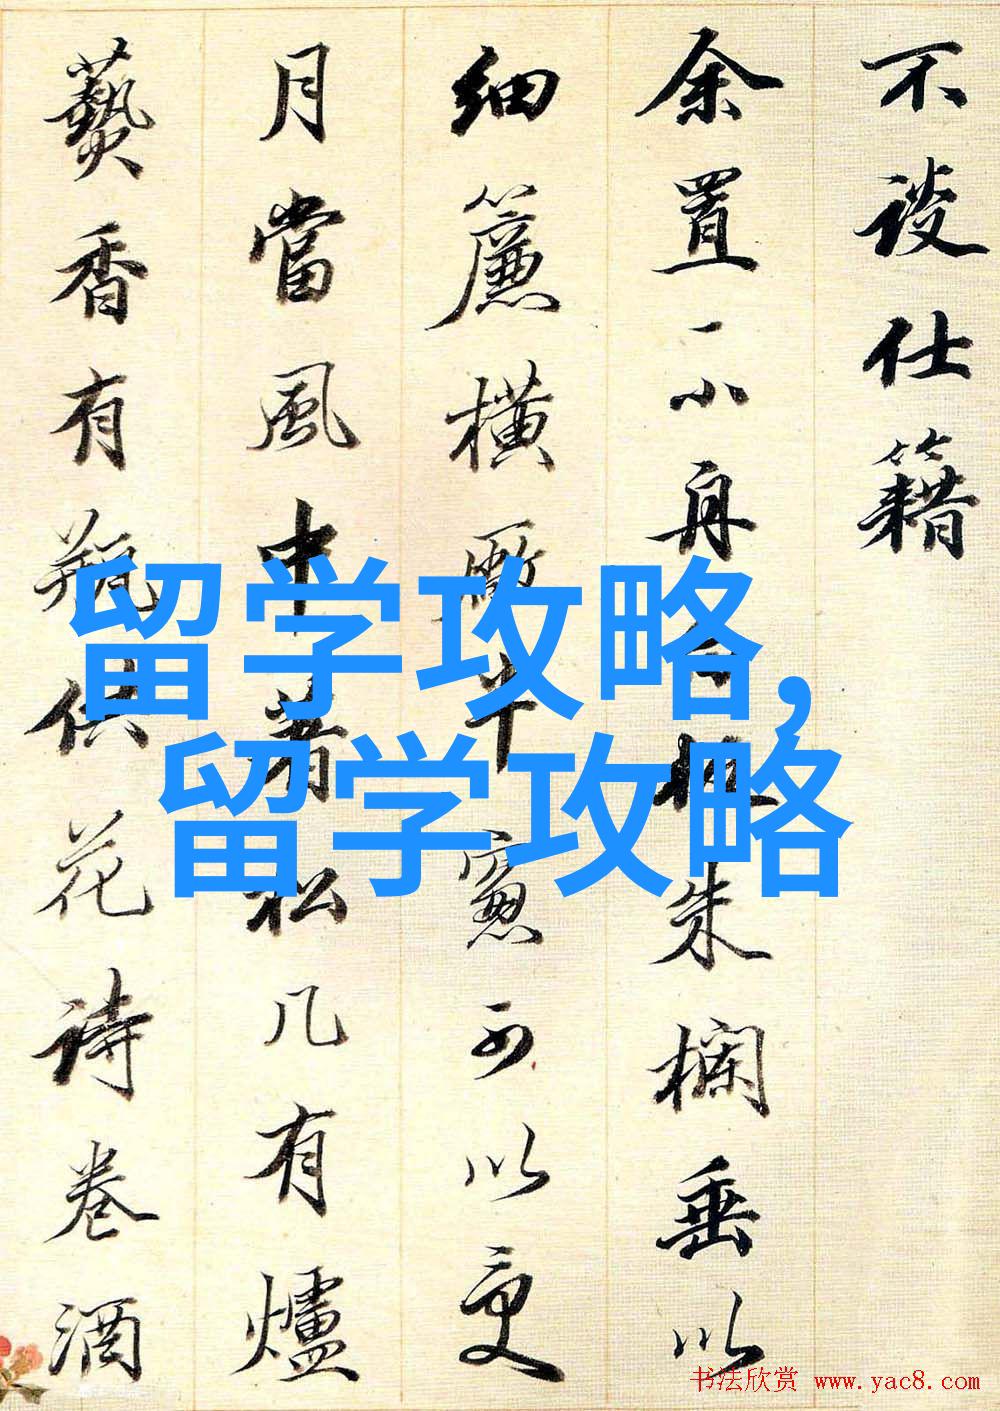 不談仕籍
余置一小舟朱欄垂以
細簾橫窻可以更
月當風中著松几有爐
爇香有瓶供花詩卷酒
留学攻略,
留学攻略
书法欣赏 www.yac8.com